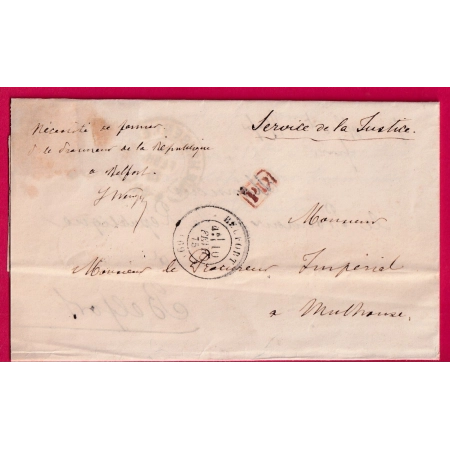 Nécessité de fermer
Le Procureur de la République
à Belfort.
Service de la Justice.
P.D.
BELFORT
10
75
Monsieur
Monsieur le Procureur Impérial
à Mulhouse.